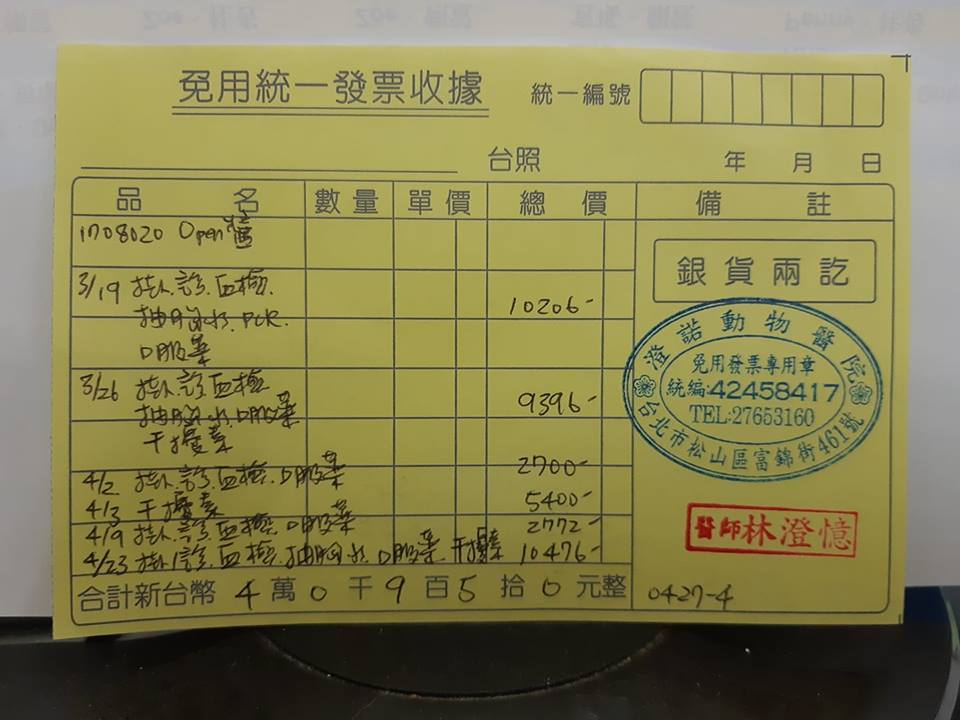 免用統一發票收據
統一編號
台照 年 月 日
品名 數量 單價 總價 備註
1708020 Open
3/19 掛.診.血檢. 10206-
抽胸水.PCR.
口服藥
3/26 掛.診.血檢 9396-
抽胸水.口服藥
干擾素
4/2 掛.診.血檢.口服藥 2700-
4/3 干擾素 5400-
4/9 掛.診.血檢.口服藥 2772-
4/23 掛.診.血檢.抽胸水.口服藥.干擾素 10476-
合計新台幣 4 萬 0 千 9 百 5 拾 0 元整
0427-4
銀貨兩訖
澄諾動物醫院
免用發票專用章
統編:42458417
TEL:27653160
台北市松山區富錦街461號
醫師林澄憶